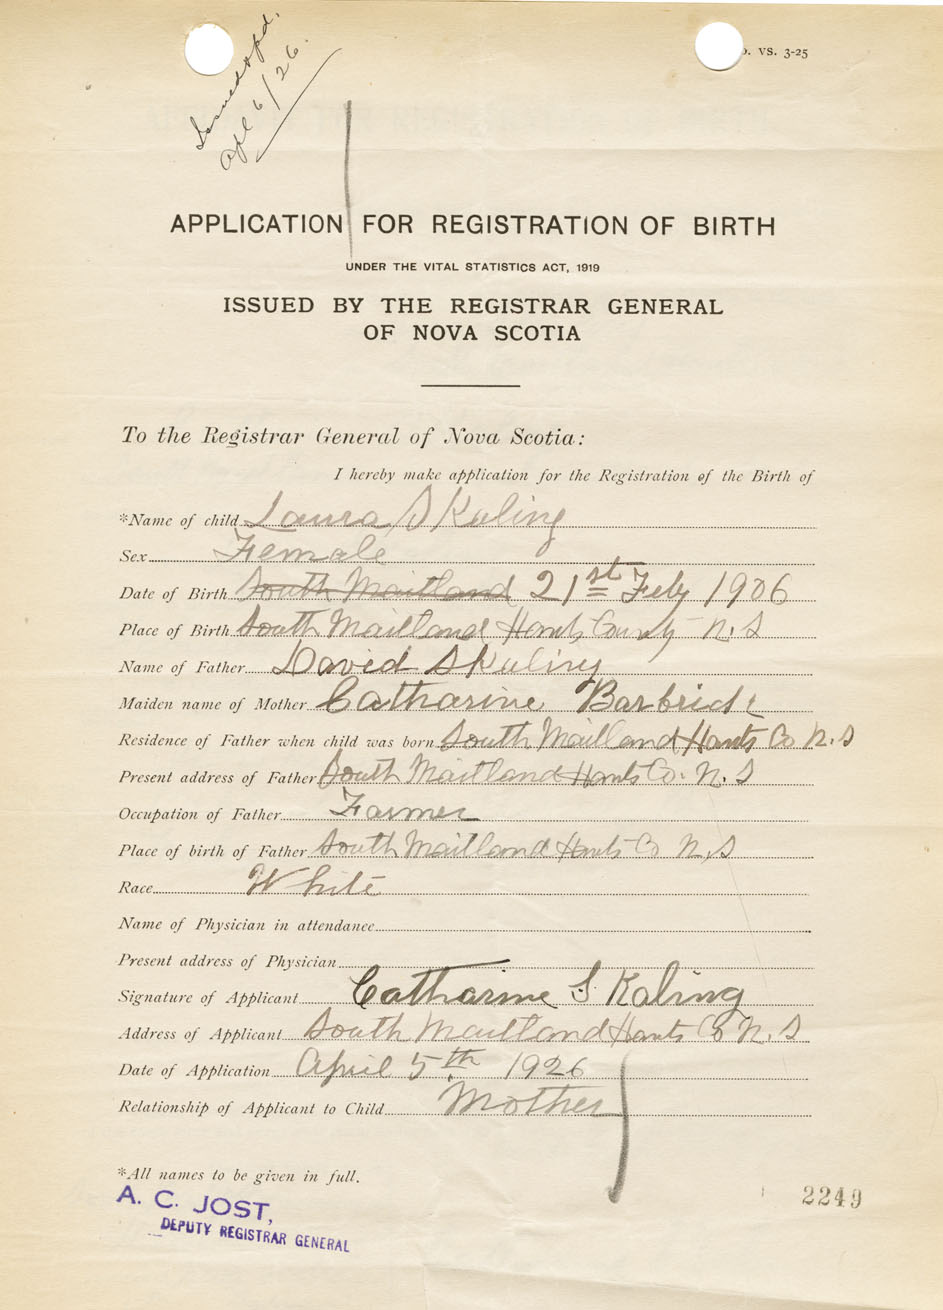 Issued & pd.
Apl 6/26.
. VS. 3-25
APPLICATION FOR REGISTRATION OF BIRTH
UNDER THE VITAL STATISTICS ACT, 1919
ISSUED BY THE REGISTRAR GENERAL
OF NOVA SCOTIA
To the Registrar General of Nova Scotia:
I hereby make application for the Registration of the Birth of
*Name of child Laura SKaling
Sex Female
Date of Birth South Maitland 21st Feby 1906
Place of Birth South Maitland Hants County N.S
Name of Father David SKaling
Maiden name of Mother Catharine Barbrick
Residence of Father when child was born South Maitland Hants Co N.S
Present address of Father South Maitland Hants Co. N.S
Occupation of Father Farmer
Place of birth of Father South Maitland Hants Co N.S
Race White
Name of Physician in attendance
Present address of Physician
Signature of Applicant Catharine SKaling
Address of Applicant South Maitland Hants Co N.S
Date of Application April 5th 1926
Relationship of Applicant to Child Mother
*All names to be given in full.
A. C. JOST,
DEPUTY REGISTRAR GENERAL
2249